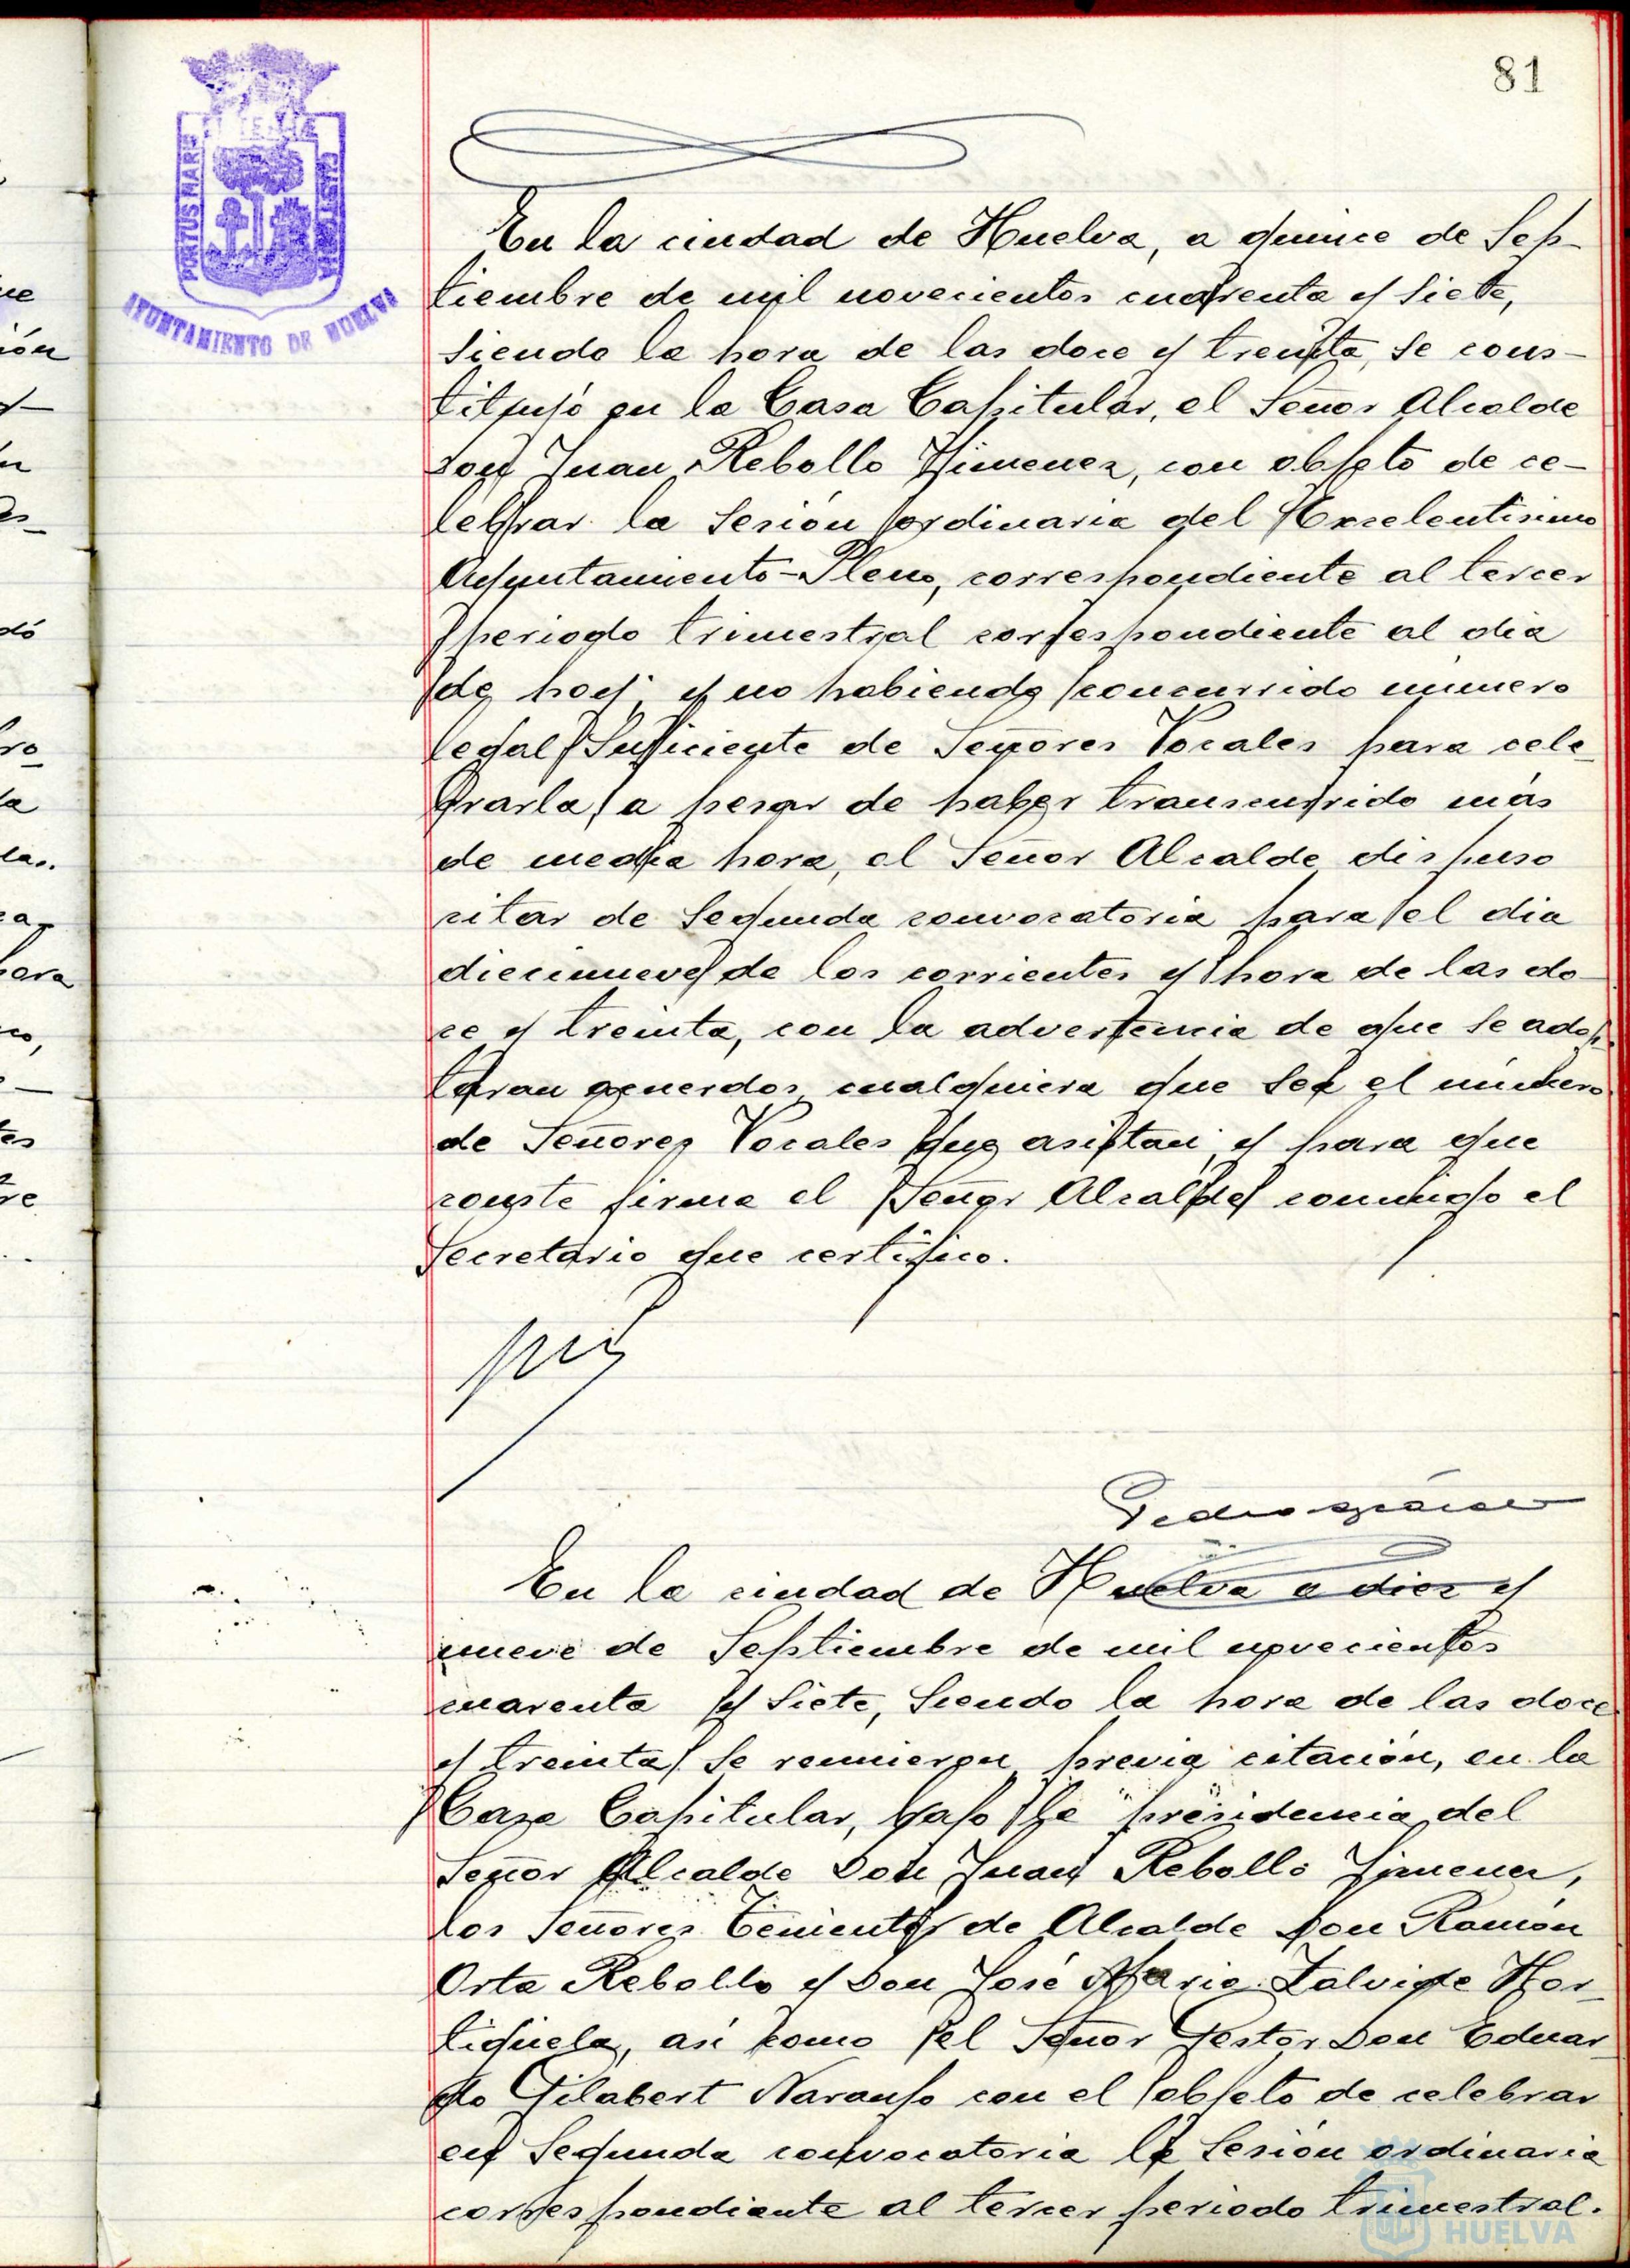 81
PORTUS MARIS
CUSTODIA
AYUNTAMIENTO DE HUELVA
En la ciudad de Huelva, a quince de Sep-
tiembre de mil novecientos cuarenta y siete,
siendo la hora de las doce y treinta, se cons-
tituyó en la Casa Capitular, el Señor Alcalde
Don Juan Rebollo Jimenez, con objeto de ce-
lebrar la sesión ordinaria del Excelentisimo
Ayuntamiento-Pleno, correspondiente al tercer
periodo trimestral correspondiente al dia
de hoy; y no habiendo concurrido número
legal suficiente de Señores Vocales para cele-
brarla, a pesar de haber transcurrido más
de media hora, el Señor Alcalde dispuso
citar de segunda convocatoria para el dia
diecinueve de los corrientes y hora de las do-
ce y treinta, con la advertencia de que se adop-
taran acuerdos cualquiera que sea el número
de Señores Vocales que asistan; y para que
conste firma el Señor Alcalde conmigo el
Secretario que certifico.
Pedro
En la ciudad de Huelva a diez y
nueve de Septiembre de mil novecientos
cuarenta y siete, siendo la hora de las doce
y treinta, se reunieron, previa citación, en la
Casa Capitular, bajo la presidencia del
Señor Alcalde Don Juan Rebollo Jimenez,
los Señores Tenientes de Alcalde Don Ramón
Orta Rebollo y Don José Maria Zalvide Hor-
tigüela, asi como el Señor Gestor Don Eduar-
do Gilabert Naranjo con el objeto de celebrar
en segunda convocatoria la sesión ordinaria
correspondiente al tercer periodo trimestral.
HUELVA